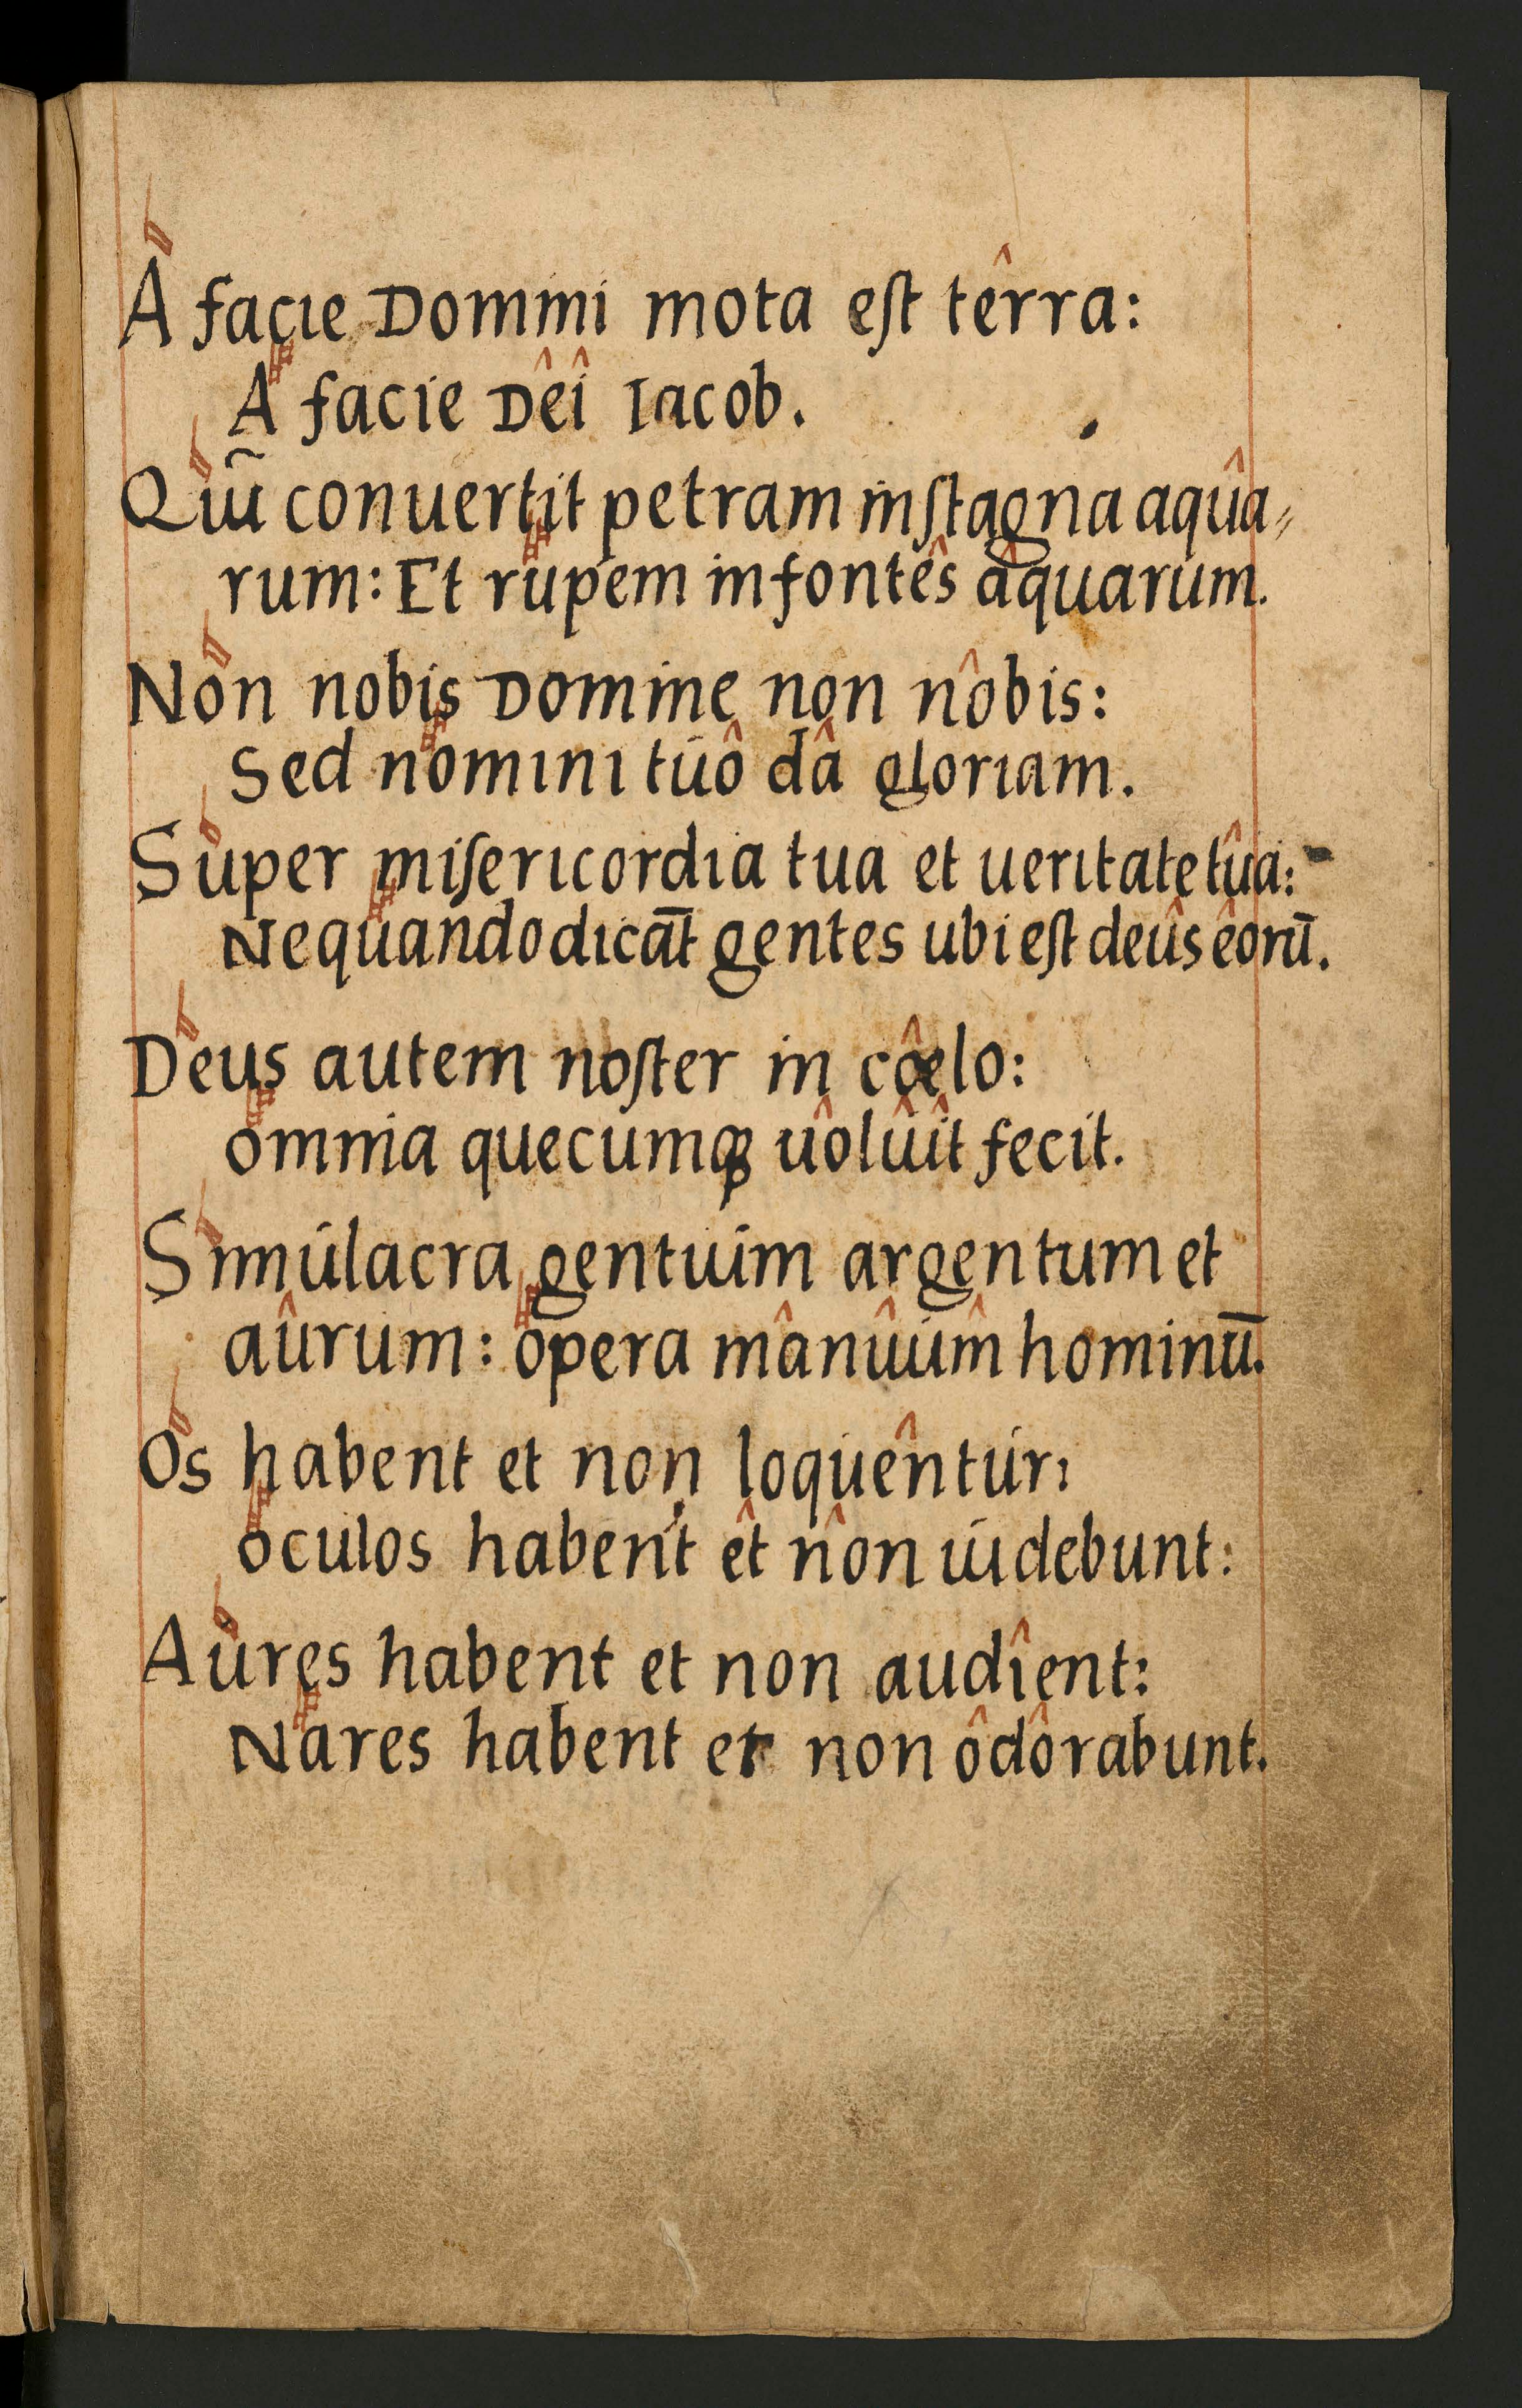 A facie Domini mota eſt têrra:
A facie Dêî Iacob.
Qui conuertit petram in ſtagna aqûa⸗
rum: Et rupem in fontês âquarum.
Non nobis Domine non nôbis:
Sed nomini tuô dâ gloriam.
Super miſericordia tua et ueritate tûa:
Nequando dicāt gentes ubi eſt deûs êorū.
Deus autem noſter in cœ̂lo:
omnia quecumqꝫ uôlûît fecit.
Simulacra gentium argentum et
aûrum: opera mânûum̂ hominū.
Os habent et non loquêntur:
oculos habent êt nôn uidebunt:
Aures habent et non audîent:
Nares habent et non ôdôrabunt.